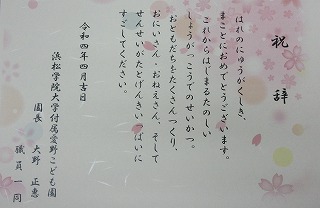 祝辞
はれのにゅうがくしき、
まことにおめでとうございます。
これからはじまるたのしい
しょうがっこうでのせいかつ。
おともだちをたくさんつくり、
おにいさん・おねえさん、そして
せんせいがたとげんきいっぱいに
すごしてください。
令和四年四月吉日
浜松学院大学付属愛野こども園
園長 大野 正恵
職員一同